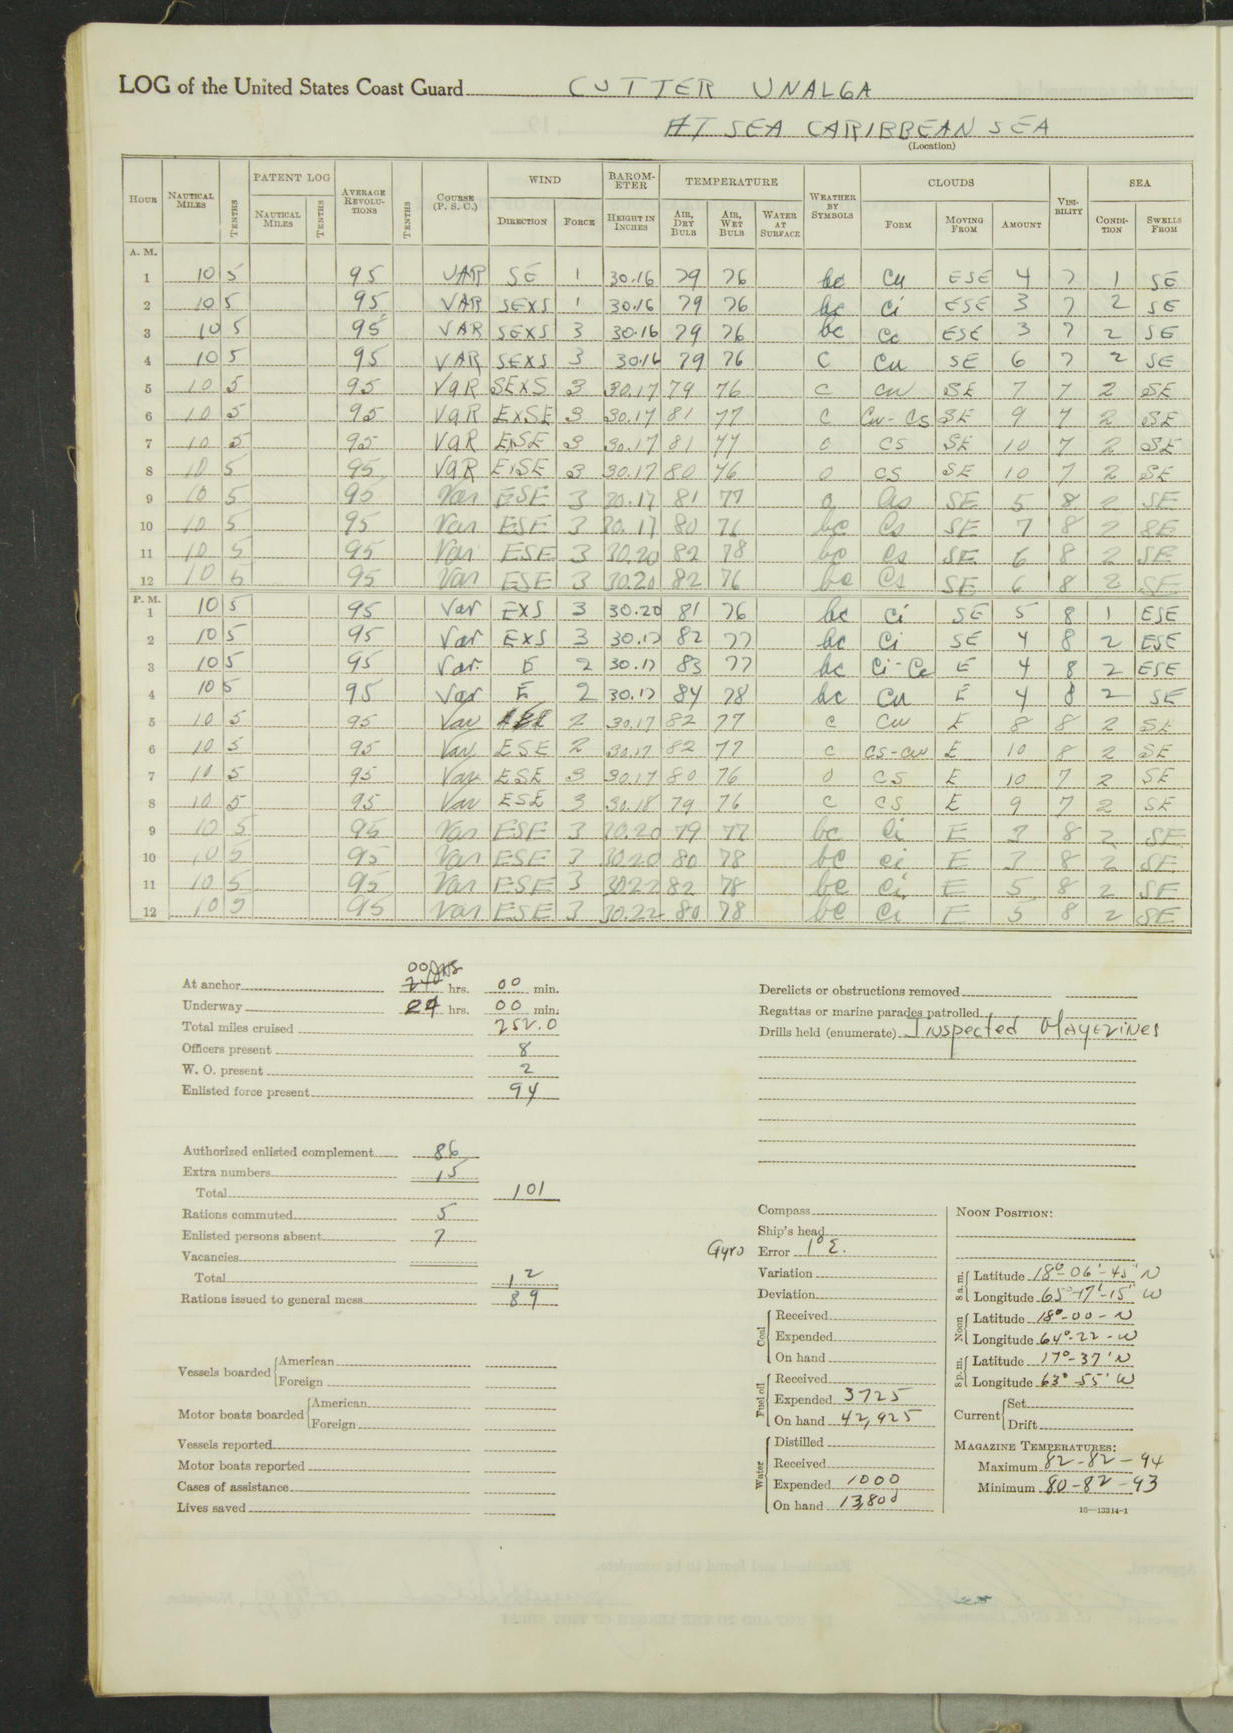 LOG of the United States Coast Guard CUTTER UNALGA
AT SEA CARIBBEAN SEA
(Location)
HOUR NAUTICAL MILES TENTHS PATENT LOG NAUTICAL MILES TENTHS AVERAGE REVOLUTIONS TENTHS COURSE (P. S. C.) WIND DIRECTION FORCE BAROMETER HEIGHT IN INCHES TEMPERATURE AIR, DRY BULB AIR, WET BULB WATER AT SURFACE WEATHER BY SYMBOLS CLOUDS FORM MOVING FROM AMOUNT VISIBILITY SEA CONDITION SWELLS FROM
A. M.
1 10 5 95 VAR SE 1 30.16 79 76 bc Cu ESE 4 7 1 SE
2 10 5 95 VAR SEXS 1 30.16 79 76 bc Ci ESE 3 7 2 SE
3 10 5 95 VAR SEXS 3 30.16 79 76 bc Cc ESE 3 7 2 SE
4 10 5 95 VAR SEXS 3 30.16 79 76 C Cu SE 6 7 2 SE
5 10 5 95 VAR SEXS 3 30.17 79 76 C Cu SE 7 7 2 SE
6 10 5 95 VAR EXSE 3 30.17 81 77 C Cu-Cs SE 9 7 2 SE
7 10 5 95 VAR EXSE 3 30.17 81 77 O CS SE 10 7 2 SE
8 10 5 95 VAR EXSE 3 30.17 80 76 O CS SE 10 7 2 SE
9 10 5 95 Var ESE 3 30.17 81 77 O SE 5 8 2 SE
10 10 5 95 Var ESE 3 30.17 80 76 bc Cs SE 7 8 2 SE
11 10 5 95 Var ESE 3 30.20 82 78 bc Cs SE 6 8 2 SE
12 10 5 95 Var ESE 3 30.20 82 76 bc Cs SE 6 8 2 SE
P. M.
1 10 5 95 Var EXS 3 30.20 81 76 bc Ci SE 5 8 1 ESE
2 10 5 95 Var EXS 3 30.17 82 77 bc Ci SE 4 8 2 ESE
3 10 5 95 Var. E 2 30.17 83 77 bc Ci-Cc E 4 8 2 ESE
4 10 5 95 Var E 2 30.17 84 78 bc Cu E 4 8 2 SE
5 10 5 95 Var 2 30.17 82 77 C Cu E 8 8 2 SE
6 10 5 95 Var ESE 2 30.17 82 77 C CS-Cu E 10 8 2 SE
7 10 5 95 Var ESE 3 30.17 80 76 O CS E 10 7 2 SE
8 10 5 95 Var ESE 3 30.18 79 76 C CS E 9 7 2 SE
9 10 5 95 Var ESE 3 30.20 79 77 bc Ci E 3 8 2 SE
10 10 5 95 Var ESE 3 30.20 80 78 bc Ci E 3 8 2 SE
11 10 5 95 Var ESE 3 30.22 82 78 bc Ci E 5 8 2 SE
12 10 5 95 Var ESE 3 30.22 80 78 bc Ci E 5 8 2 SE
At anchor 00 hrs. 00 min.
Underway 24 hrs. 00 min.
Total miles cruised 252.0
Officers present 8
W. O. present 2
Enlisted force present 94
Authorized enlisted complement 86
Extra numbers 15
Total 101
Rations commuted 5
Enlisted persons absent 7
Vacancies
Total 12
Rations issued to general mess 89
Vessels boarded American
Foreign
Motor boats boarded American
Foreign
Vessels reported
Motor boats reported
Cases of assistance
Lives saved
Derelicts or obstructions removed
Regattas or marine parades patrolled
Drills held (enumerate) Inspected Magazines
Compass
Ship's head
Gyro Error 1° E.
Variation
Deviation
Coal Received
Expended
On hand
Fuel oil Received
Expended 3725
On hand 42,925
Water Distilled
Received
Expended 1000
On hand 13,800
NOON POSITION:
8 a.m. Latitude 18°-06'-45" N
Longitude 65°-17'-15" W
Noon Latitude 18°-00-N
Longitude 64°-22-W
8 p.m. Latitude 17°-37' N
Longitude 63°-55' W
Current Set
Drift
MAGAZINE TEMPERATURES:
Maximum 82-82-94
Minimum 80-82-93
16—13314-1